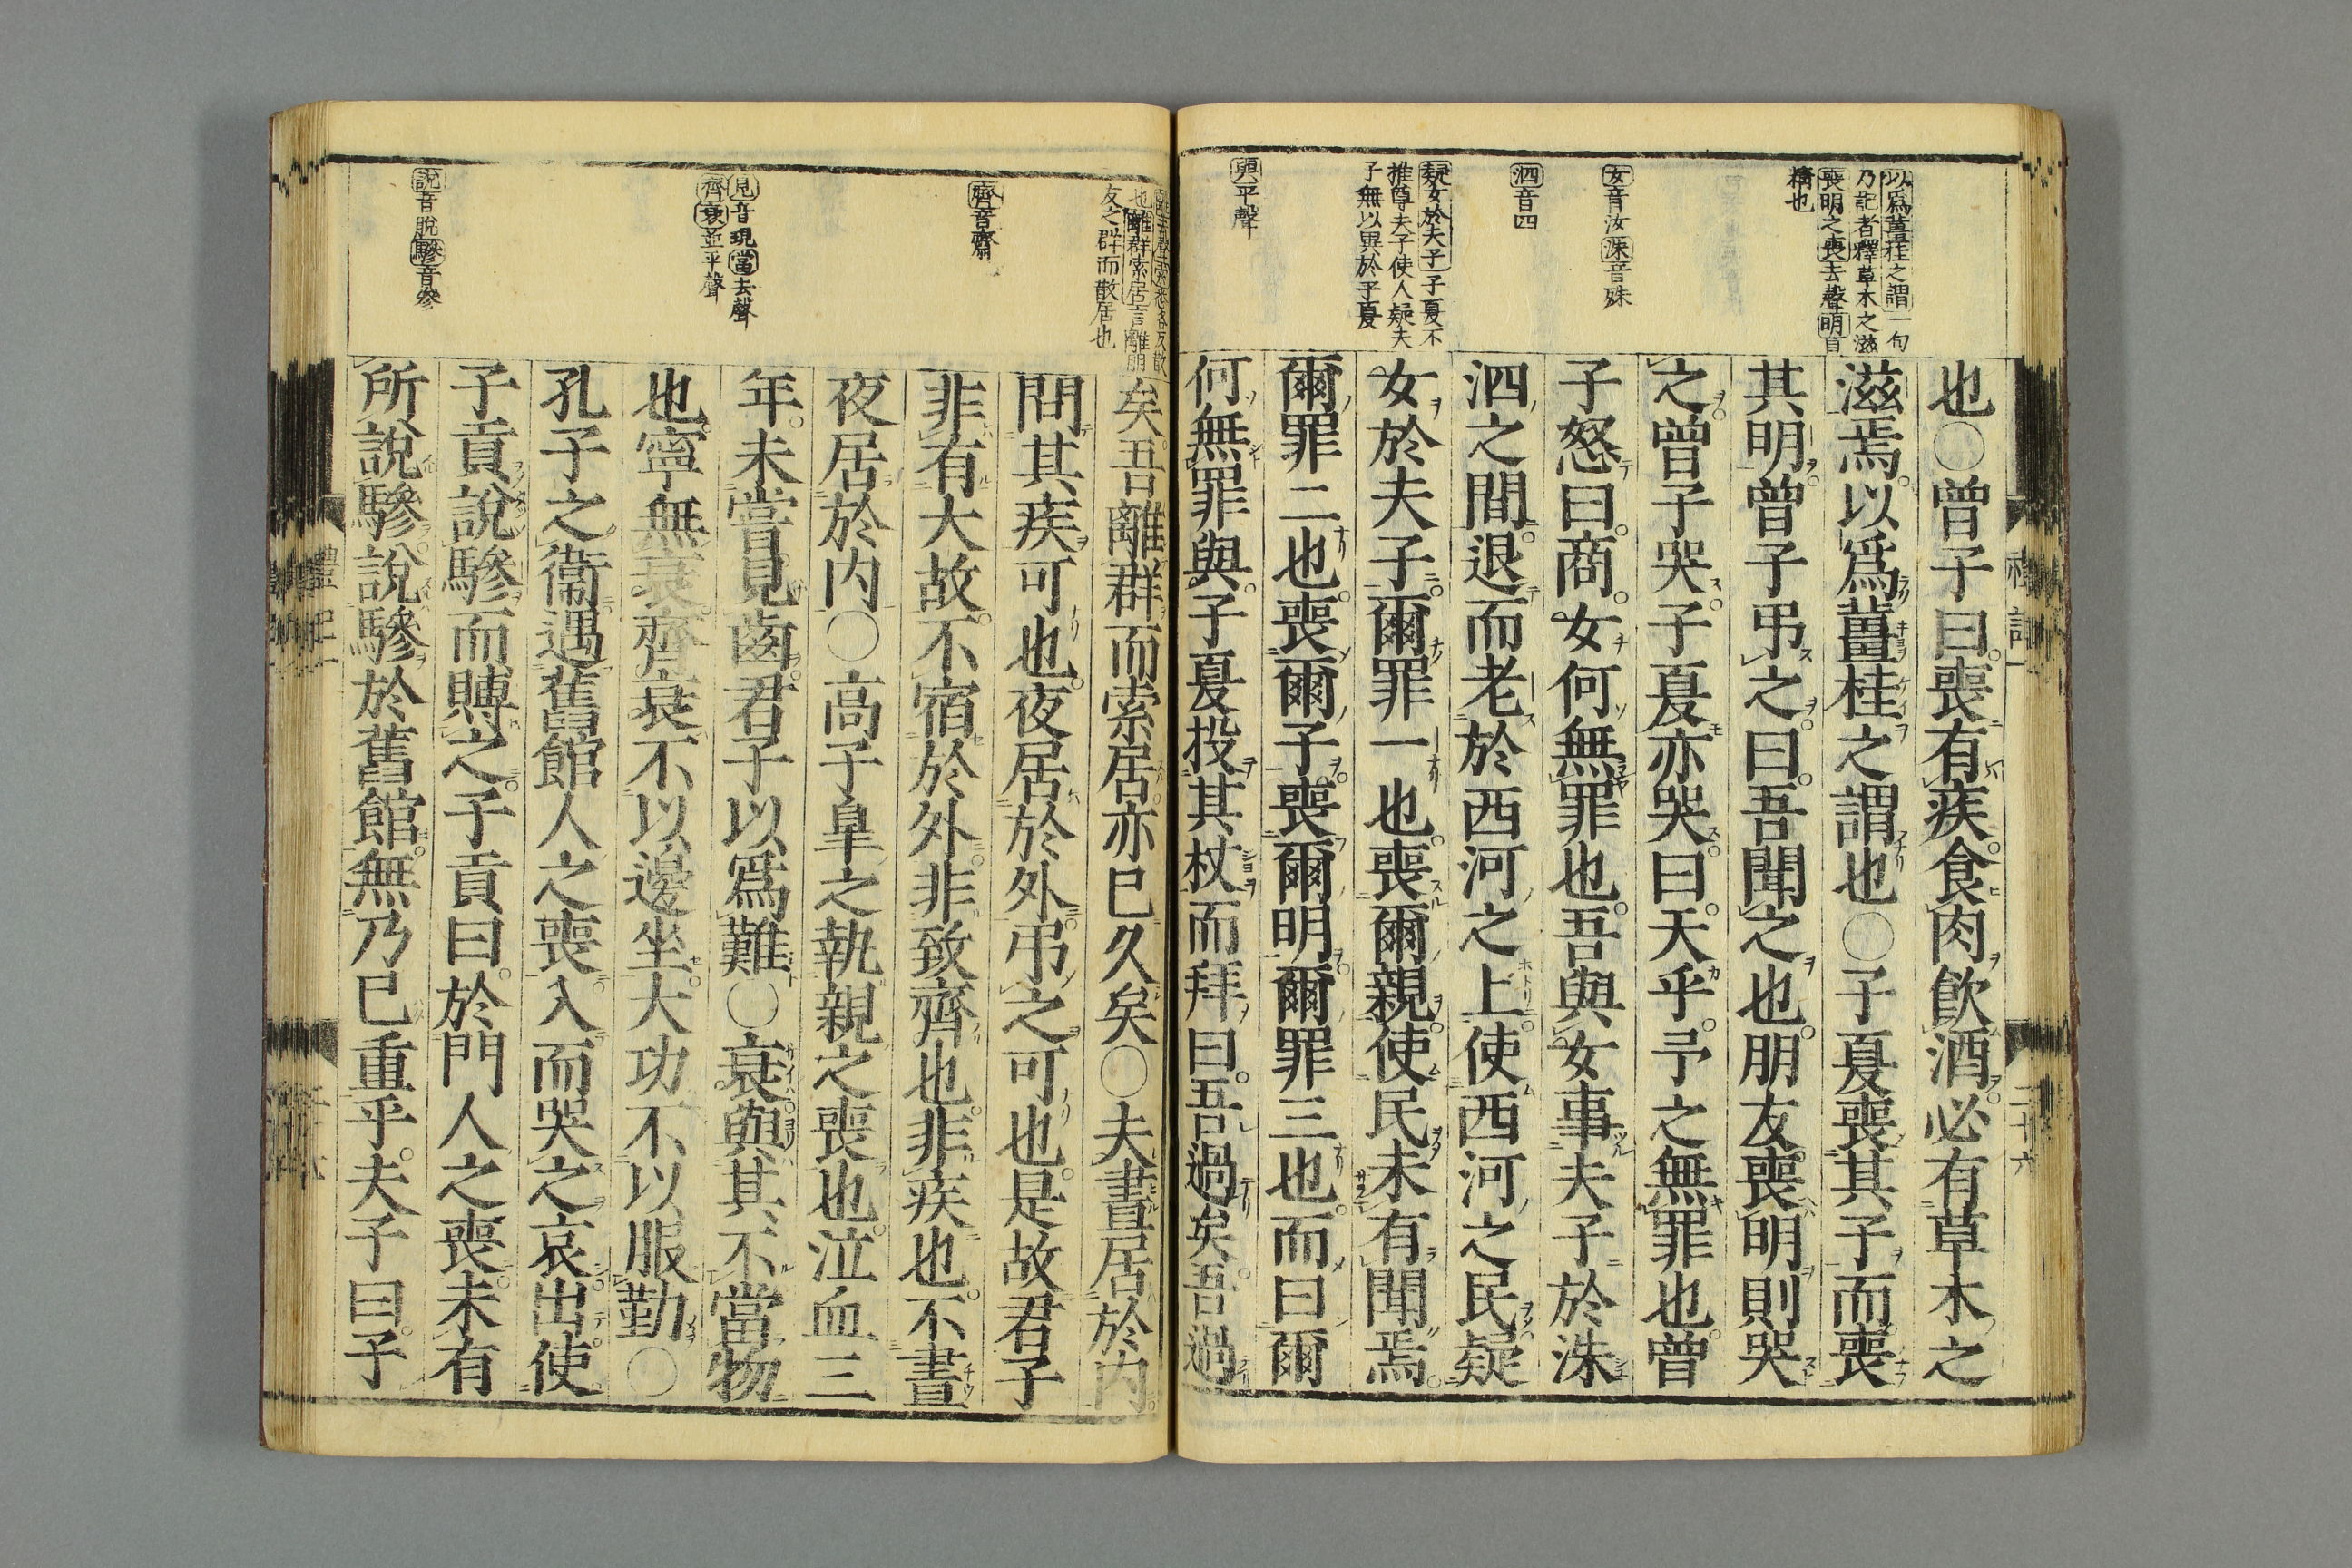 以爲薑桂之謂一句
乃記者釋草木之滋
喪明之喪去聲明目
精也
女音汝洙音殊
泗音四
疑女於夫子子夏不
推尊夫子使人疑夫
子無以異於子夏
與平聲
也○曾子曰喪有疾食肉飲酒必有草木之
滋焉以爲薑桂之謂也○子夏喪其子而喪
其明曾子弔之曰吾聞之也朋友喪明則哭
之曾子哭子夏亦哭曰天乎予之無罪也曾
子怒曰商女何無罪也吾與女事夫子於洙
泗之間退而老於西河之上使西河之民疑
女於夫子爾罪一也喪爾親使民未有聞焉
爾罪二也喪爾子喪爾明爾罪三也而曰爾
何無罪與子夏投其杖而拜曰吾過矣吾過
也離群索居言離朋
友之群而散居也
齊音齋
見音現當去聲
齊衰並平聲
說音脫驂音參
矣吾離群而索居亦已久矣○夫晝居於内
問其疾可也夜居於外弔之可也是故君子
非有大故不宿於外非致齊也非疾也不晝
夜居於内○高子皐之執親之喪也泣血三
年未嘗見齒君子以爲難○衰與其不當物
也寧無衰齊衰不以邊坐大功不以服勤○
孔子之衞遇舊館人之喪入而哭之哀出使
子貢說驂而賻之子貢曰於門人之喪未有
所說驂說驂於舊館無乃已重乎夫子曰予